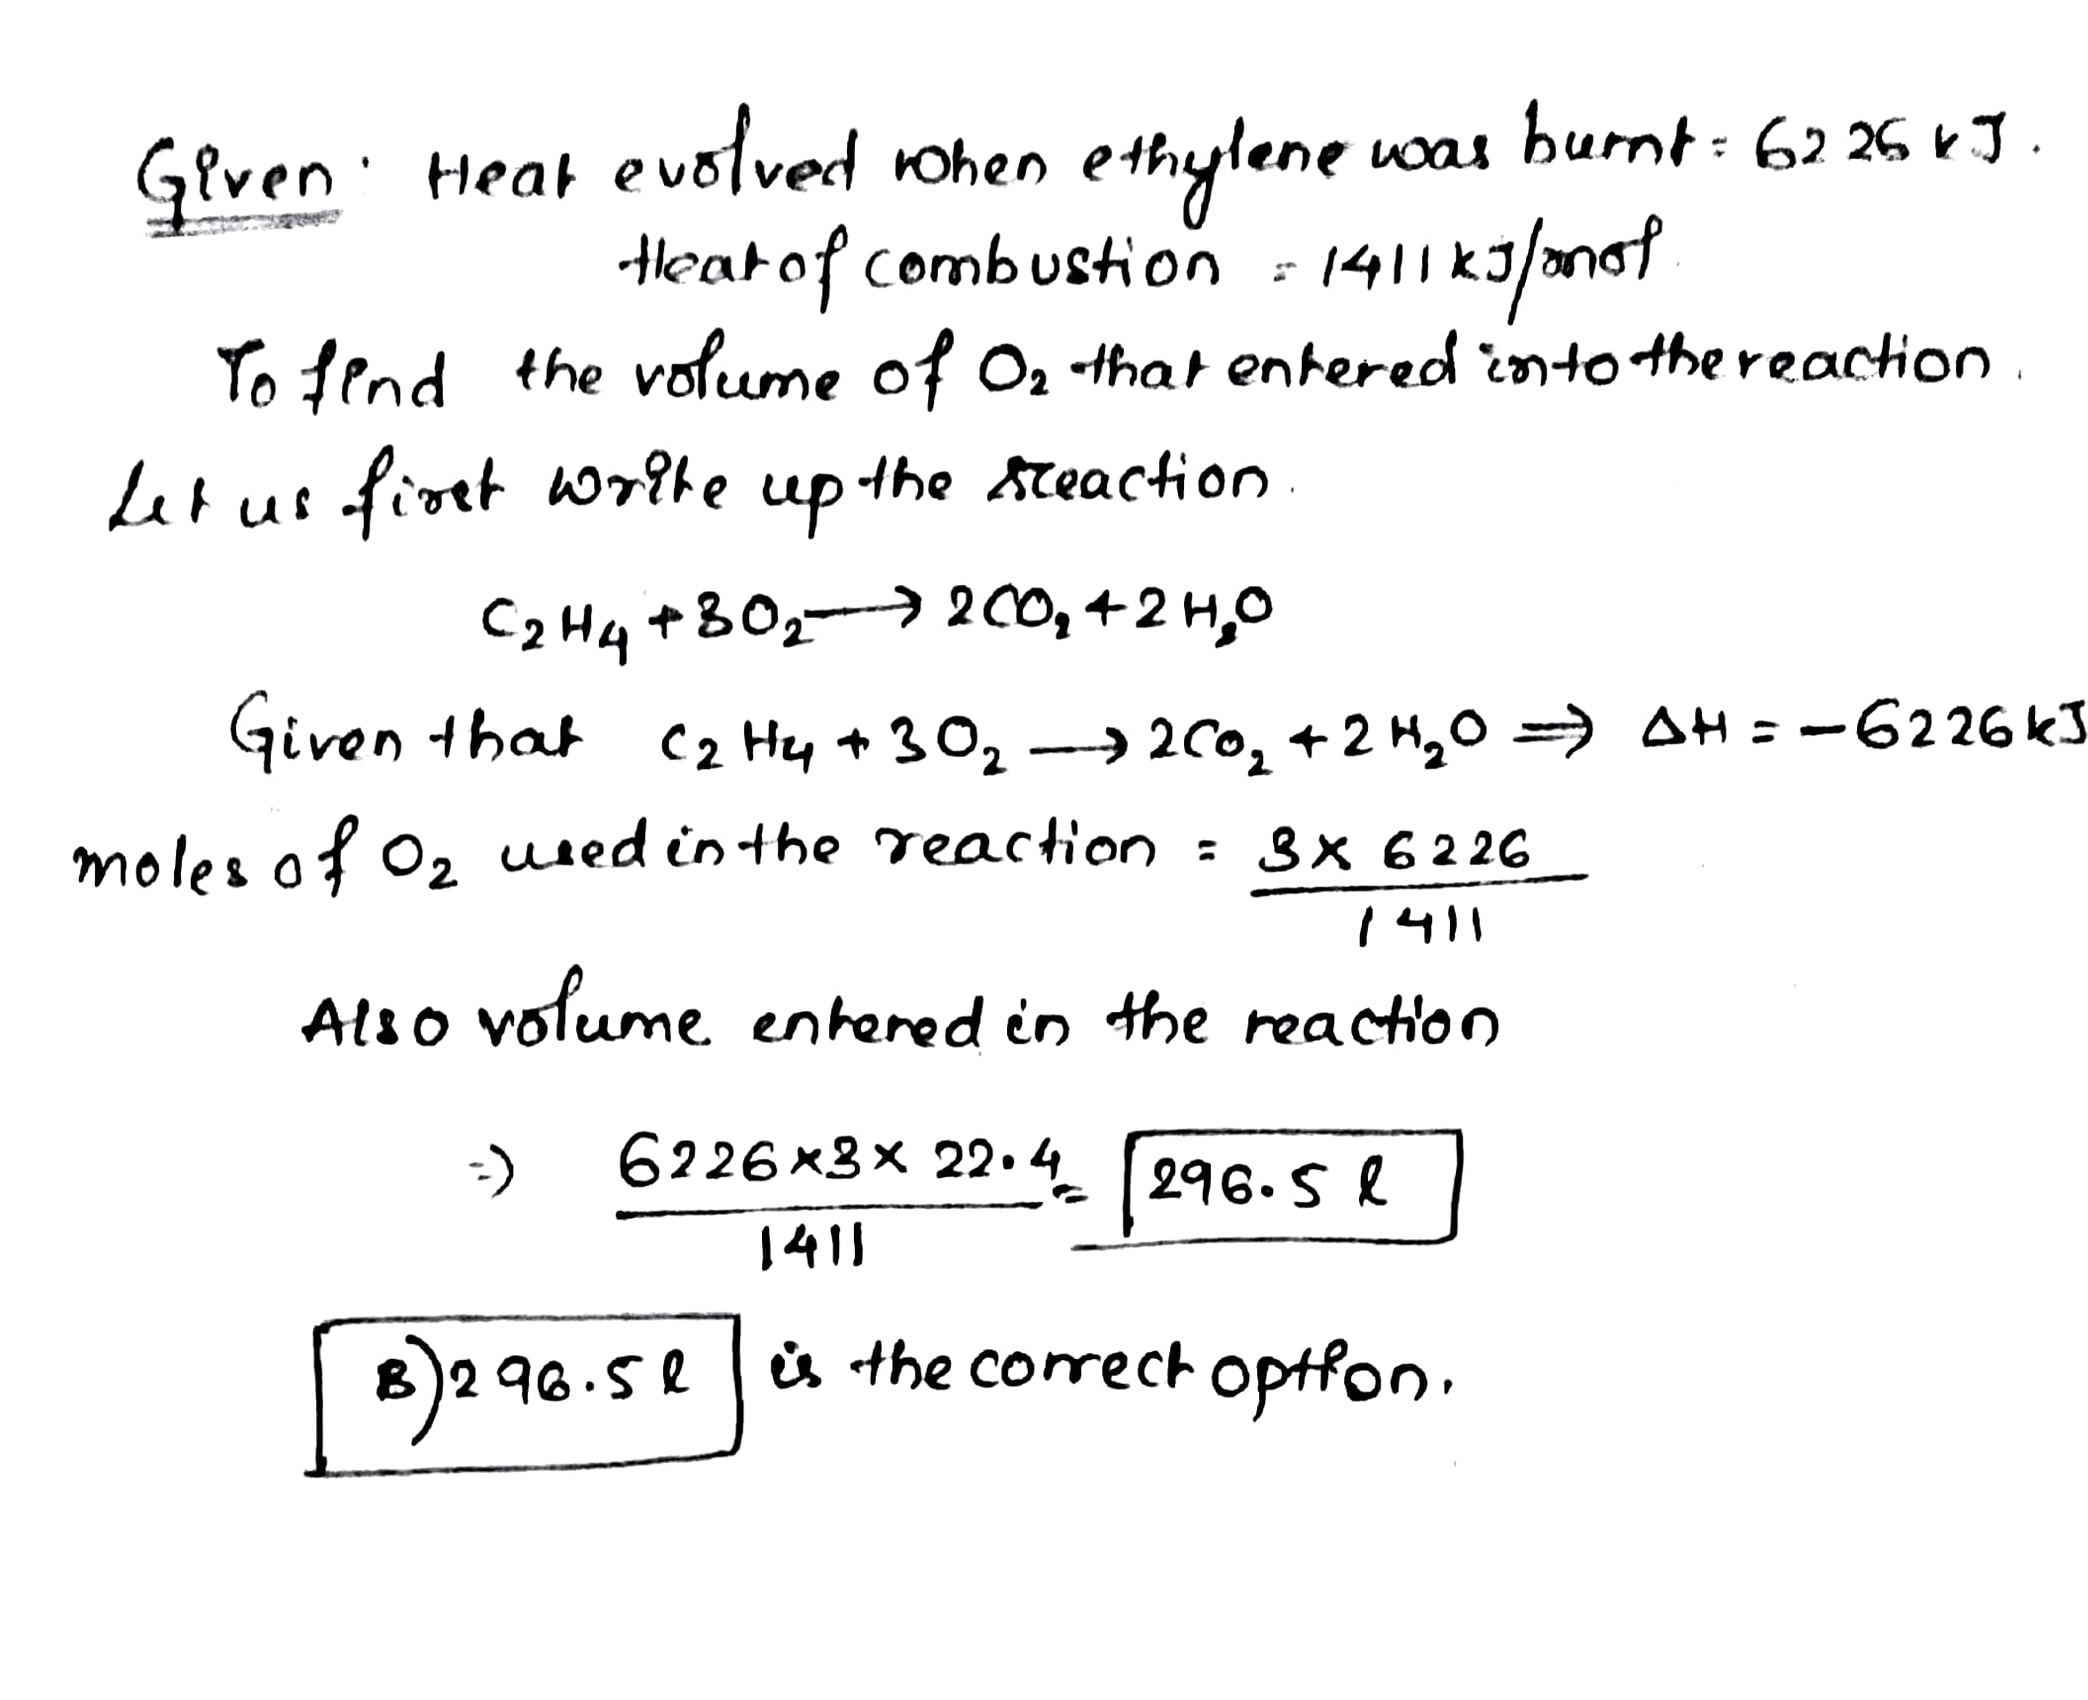 Given: Heat evolved when ethylene was burnt = 6226 kJ.
Heat of combustion = 1411 kJ/mol.
To find the volume of O₂ that entered into the reaction.
Let us first write up the reaction.
C₂H₄ + 3O₂ → 2CO₂ + 2H₂O
Given that C₂H₄ + 3O₂ → 2CO₂ + 2H₂O ⇒ ΔH = -6226 kJ
moles of O₂ used in the reaction = 3 × 6226 / 1411
Also volume entered in the reaction
⇒ 6226 × 3 × 22.4 / 1411 = 296.5 l
B) 296.5 l is the correct option.